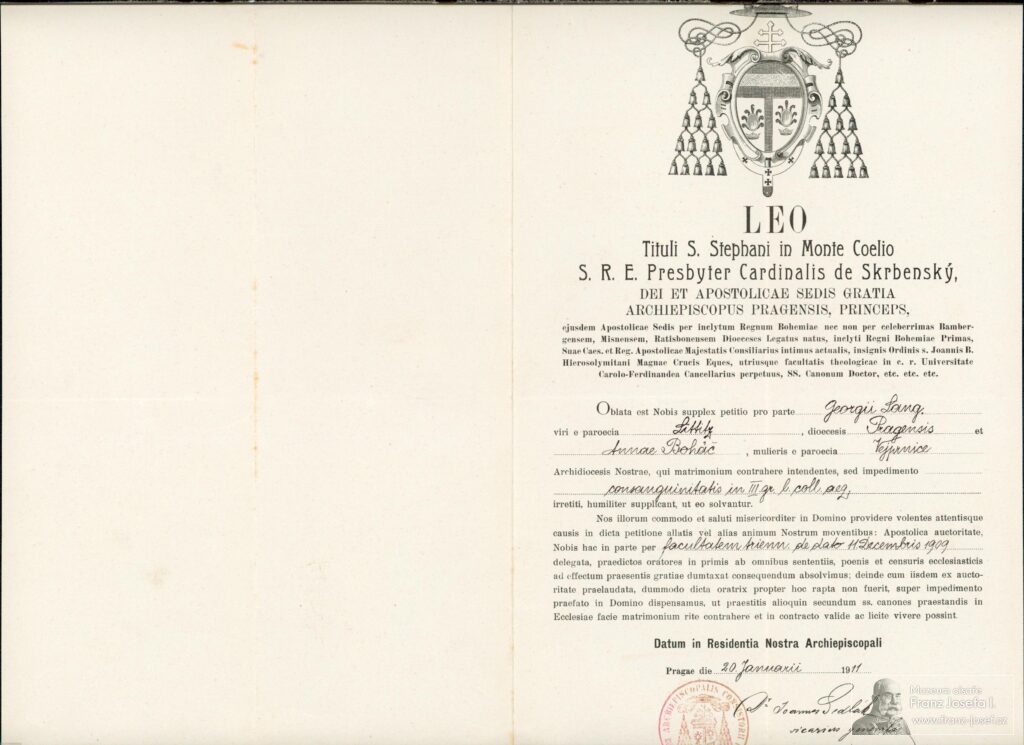 LEO
Tituli S. Stephani in Monte Coelio
S. R. E. Presbyter Cardinalis de Skrbenský,
DEI ET APOSTOLICAE SEDIS GRATIA
ARCHIEPISCOPUS PRAGENSIS, PRINCEPS,
ejusdem Apostolicae Sedis per inclytum Regnum Bohemiae nec non per celeberrimas Bamber-
gensem, Misnensem, Ratisbonensem Dioeceses Legatus natus, inclyti Regni Bohemiae Primas,
Suae Caes. et Reg. Apostolicae Majestatis Consiliarius intimus actualis, insignis Ordinis s. Joannis B.
Hierosolymitani Magnae Crucis Eques, utriusque facultatis theologicae in c. r. Universitate
Carolo-Ferdinandea Cancellarius perpetuus, SS. Canonum Doctor, etc. etc. etc.
Oblata est Nobis supplex petitio pro parte Georgii Lang,
viri e paroecia Littitz, dioecesis Pragensis et
Annae Boháč, mulieris e paroecia Vejprnice
Archidiocesis Nostrae, qui matrimonium contrahere intendentes, sed impedimento
consanguinitatis in III gr. l. coll. aeq.
irretiti, humiliter supplicant, ut eo solvantur.
Nos illorum commodo et saluti misericorditer in Domino providere volentes attentisque
causis in dicta petitione allatis vel alias animum Nostrum moventibus: Apostolica auctoritate,
Nobis hac in parte per facultatem trienn. de dato 11. Decembris 1909
delegata, praedictos oratores in primis ab omnibus sententiis, poenis et censuris ecclesiasticis
ad effectum praesentis gratiae dumtaxat consequendum absolvimus; deinde cum iisdem ex aucto-
ritate praelaudata, dummodo dicta oratrix propter hoc rapta non fuerit, super impedimento
praefato in Domino dispensamus, ut praestitis alioquin secundum ss. canones praestandis in
Ecclesiae facie matrimonium rite contrahere et in contracto valide ac licite vivere possint.
Datum in Residentia Nostra Archiepiscopali
Pragae die 20. Januarii 1911
ARCHIEPISCOPALIS CONSISTORII
Dr. Joannes Sedlák
vicarius generalis
Muzeum císaře
Franz Josefa I.
www.franz-josef.cz